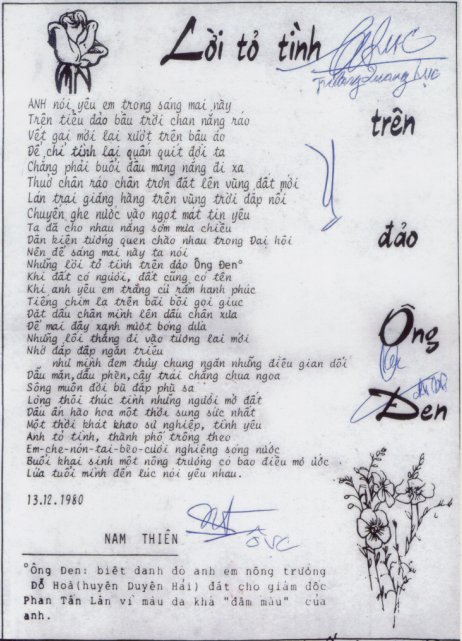 Lời tỏ tình
trên
đảo
Ông
Đen
ANH nói yêu em trong sáng mai này
Trên tiểu đảo bầu trời chan nắng ráo
Vết gai mới lai xướt trên bâu áo
Để chỉ tình lại quấn quít đời ta
Chẳng phải buổi đầu mang nắng đi xa
Thuở chân ráo chân trơn đặt lên vùng đất mới
Lán trại giăng hàng trên vùng trời đắp nổi
Chuyến ghe nước vào ngọt mát tin yêu
Ta đã cho nhau nắng sớm mưa chiều
Dân kiện tướng quen chào nhau trong Đại hội
Nên để sáng mai này ta nói
Những lời tỏ tình trên đảo Ông Đen°
Khi đất có người, đất cũng có tên
Khi anh yêu em trăng cù rằm hạnh phúc
Tiếng chim lạ trên bãi bồi gọi giục
Dắt dấu chân mình lên dấu chân xưa
Để mai đây xanh mướt bóng dừa
Những lối thẳng đi vào tương lai mới
Nhờ đắp đập ngăn triều
như mình đem thủy chung ngăn những điều gian dối
Dẫu mặn,dẫu phèn,cây trái chẳng chua ngoa
Sông muôn đời bù đắp phù sa
Lòng thôi thúc tình những người mở đất
Dấu ấn hào hoa một thời sung sức nhất
Một thời khát khao sự nghiệp, tình yêu
Anh tỏ tình, thành phố trông theo
Em-che-nón-tai-bèo-cười nghiêng sóng nước
Buổi khai sinh một nông trường có bao điều mơ ước
Lứa tuổi mình đến lúc nói yêu nhau.
13.12.1980
NAM THIÊN
°Ông Đen: biệt danh do anh em nông trường
Đỗ Hoà(huyện Duyên Hải) đặt cho giám đốc
Phan Tấn Lân vì màu da khá "đậm màu" của
anh.